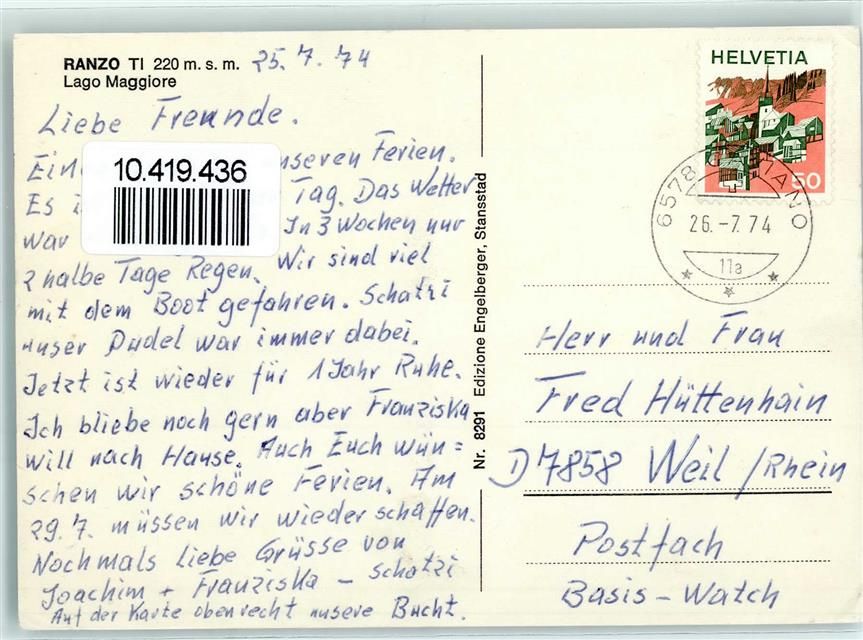 RANZO TI 220 m. s. m.
Lago Maggiore
25. 7. 74
Liebe Freunde.
10.419.436
unseren Ferien.
Es Tag. Das Wetter
war In 3 Wochen nur
2 halbe Tage Regen. Wir sind viel
mit dem Boot gefahren. Schatzi
unser Pudel war immer dabei.
Jetzt ist wieder für 1 Jahr Ruhe.
Ich bliebe noch gern aber Franziska
will nach Hause. Auch Euch wün=
schen wir schöne Ferien. Am
29.7. müssen wir wieder schaffen.
Nochmals liebe Grüsse von
Joachim + Franziska – Schatzi
Auf der Karte oben recht unsere Bucht.
Nr. 8291 Edizione Engelberger, Stansstad
HELVETIA
50
6578
26.-7.74
11a
Herr und Frau
Fred Hüttenhain
D 7858 Weil /Rhein
Postfach
Basis-Watch